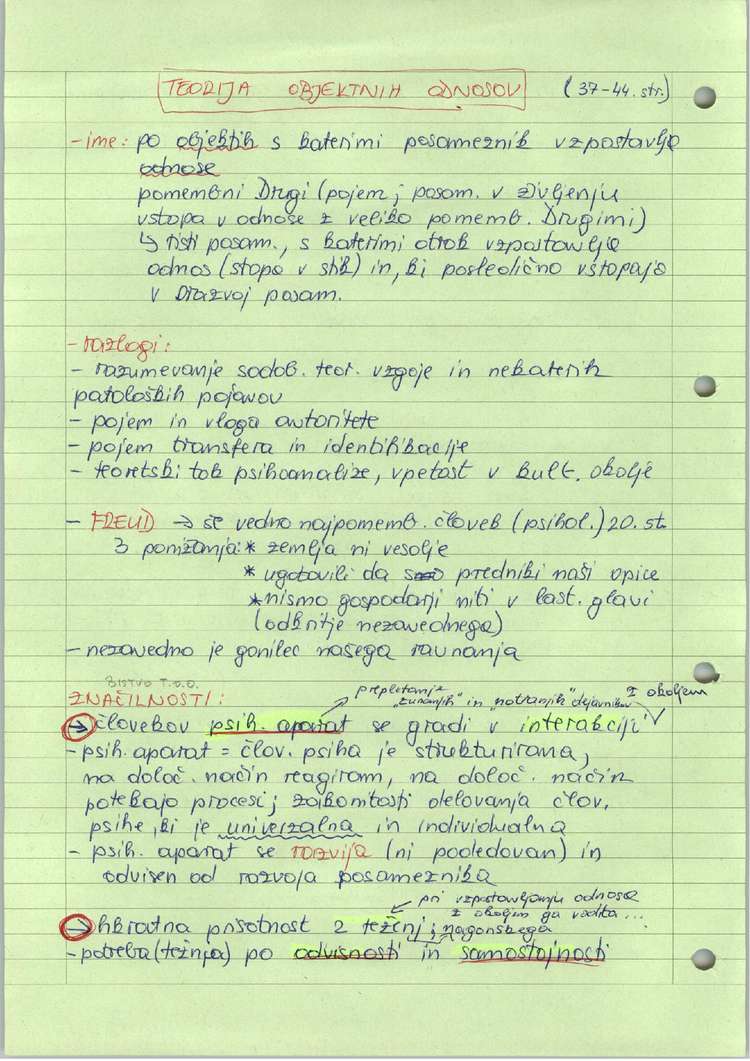 TEORIJA OBJEKTNIH ODNOSOV (37-44. str.)
- ime: po objektih s katerimi posameznik vzpostavlja
odnose
pomembni Drugi (pojem; posam. v življenju
vstopa v odnose z veliko pomemb. Drugimi)
↳ tisti posam., s katerimi otrok vzpostavlja
odnos (stopa v stik) in, ki posledično vstopajo
v razvoj posam.
- razlogi:
- razumevanje sodob. teor. vzgoje in nekaterih
patoloških pojavov
- pojem in vloga avtoritete
- pojem transfera in identifikacije
- teoretski tok psihoanalize, vpetost v kult. okolje
- FREUD → še vedno najpomemb. človek (psihol.) 20. st.
3 ponižanja: * zemlja ni vesolje
* ugotovili da so predniki naši opice
* nismo gospodarji niti v last. glavi
(odkritje nezavednega)
- nezavedno je gonilec našega ravnanja
BISTVO T.O.O.
ZNAČILNOSTI:
prepletanje
"zunanjih" in notranjih" dejavnikov
z okoljem
→ človekov psih. aparat se gradi v interakciji
- psih. aparat = člov. psiha je strukturirana,
na določ. način reagiram, na določ. način
potekajo procesi; zakonitosti delovanja člov.
psihe, ki je univerzalna in individualna
- psih. aparat se razvija (ni podedovan) in
odvisen od razvoja posameznika
pri vzpostavljanju odnosa
z okoljem ga vodita...
→ hkratna prisotnost 2 teženj; nagonskega
- potreba (težnja) po odvisnosti in samostojnosti